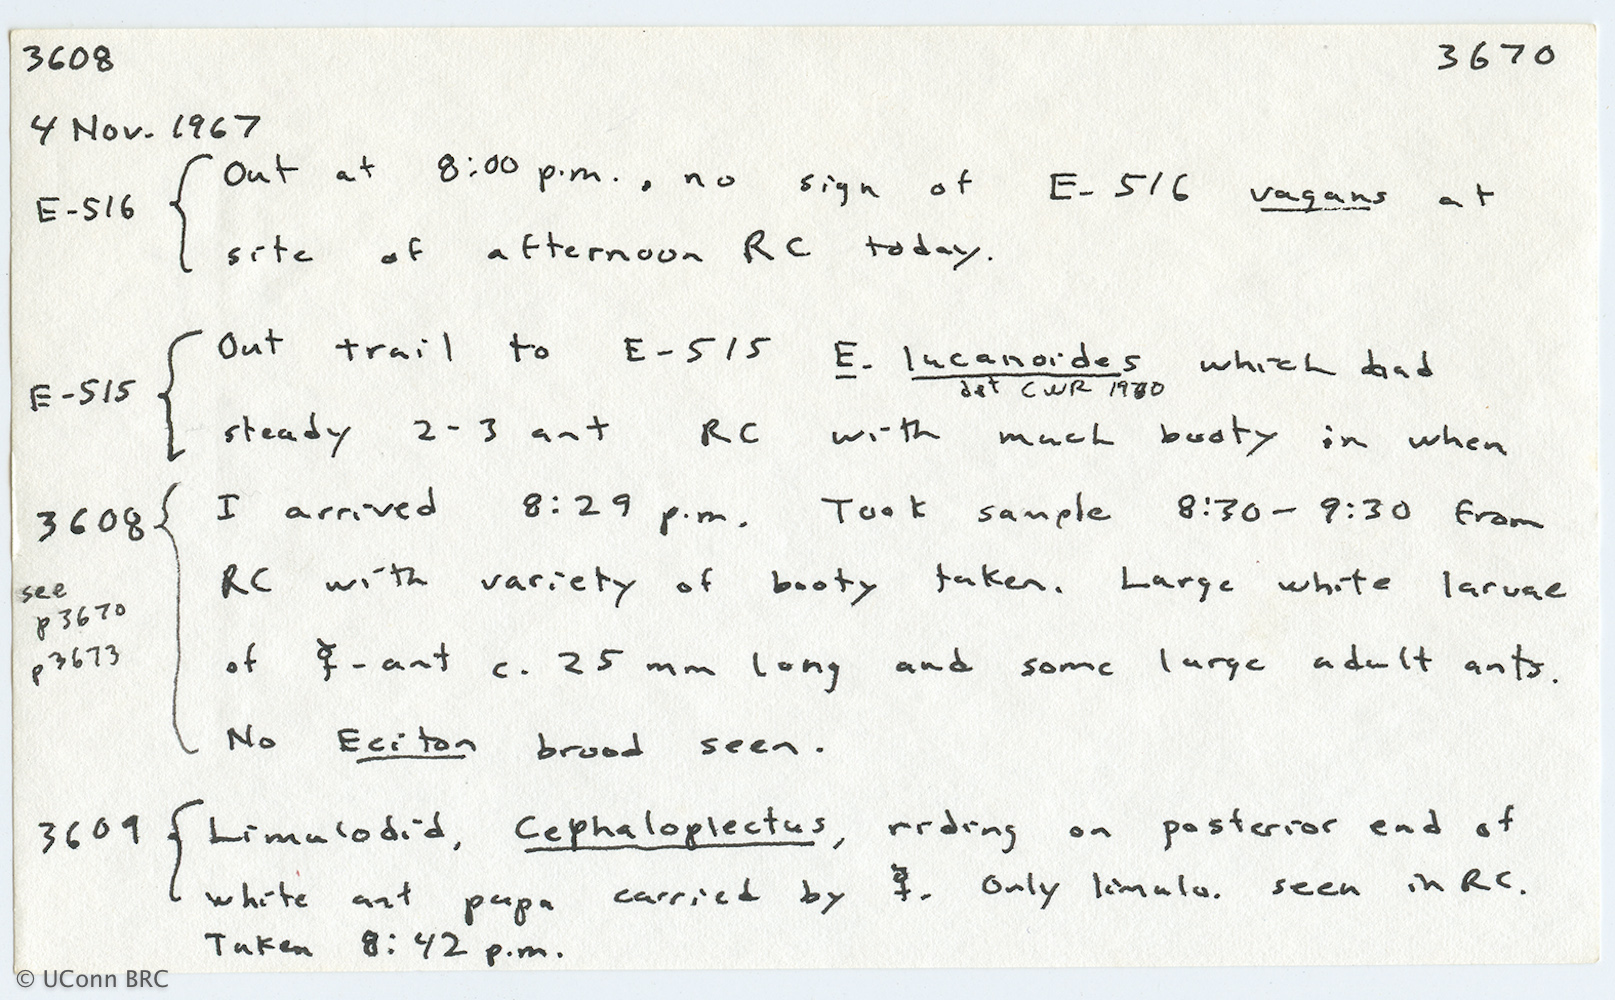 3608 3670
4 Nov. 1967
E-516 { Out at 8:00 p.m., no sign of E-516 vagans at
site of afternoon RC today.
E-515 { Out trail to E-515 E. lucanoides which had
det CWR 1980
steady 2-3 ant RC with much booty in when
3608 { I arrived 8:29 p.m. Took sample 8:30-9:30 from
see
p3670
p3673
RC with variety of booty taken. Large white larvae
of ☿-ant c. 25 mm long and some large adult ants.
No Eciton brood seen.
3609 { Limulodid, Cephaloplectus, riding on posterior end of
white ant pupa carried by ☿. Only limulo. seen in RC.
Taken 8:42 p.m.
© UConn BRC